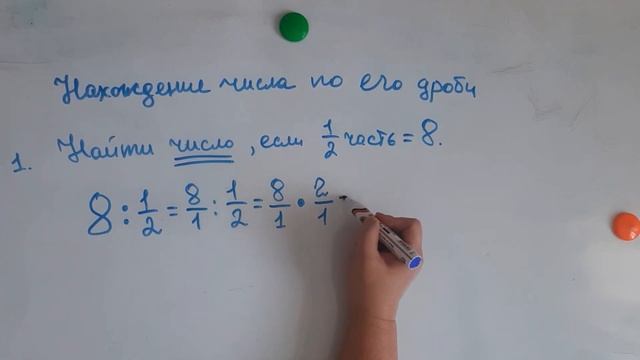 Нахождение числа по его дроби
1. Найти число, если 1/2 часть = 8.
8 : 1/2 = 8/1 : 1/2 = 8/1 • 2/1